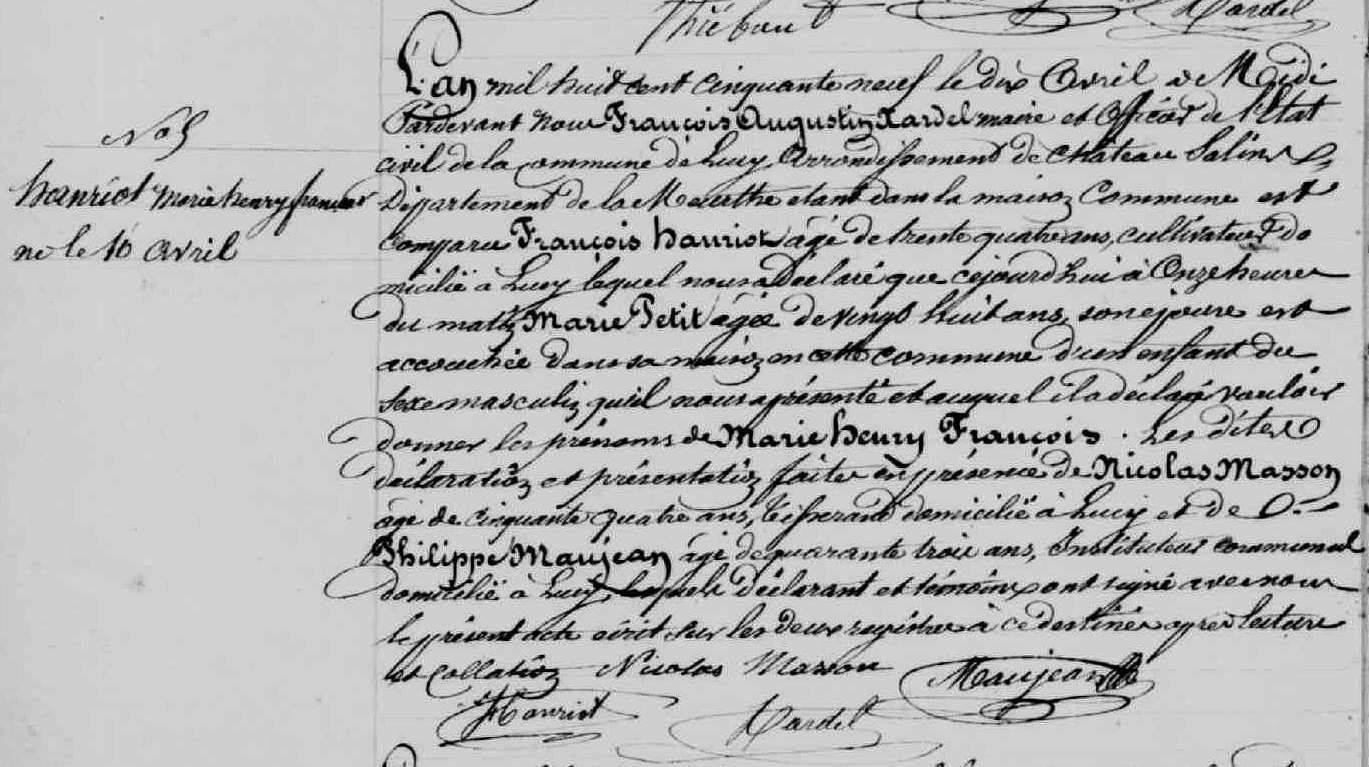 Thiébaut Xardel
No 5
hanriot Marie henry francois
né le 10 avril
L'an mil huit cent cinquante neuf le dix Avril à Midi
Pardevant nous François Augustin Xardel maire et Officier de l'Etat
civil de la commune de Lucy, Arrondissement de Château Salins
Département de la Meurthe etant dans la maison Commune est
comparu François hanriot âgé de trente quatre ans, cultivateur do
micilié à Lucy lequel nous a déclaré que cejourd'hui à Onze heures
du matin Marie Petit âgée de vingt huit ans, son épouse est
accouchée dans sa maison en cette commune d'un enfant du
sexe masculin qu'il nous a présenté et auquel il a déclaré vouloir
donner les prénoms de Marie henry François. Les dites
déclaration et présentation faites en présence de Nicolas Masson
âgé de cinquante quatre ans, tisserand domicilié à Lucy et de D.
Philippe Maujean âgé de quarante trois ans, Instituteur communal
domicilié à Lucy, lesquels déclarant et témoins ont signé avec nous
le présent acte écrit sur les deux registres à ce destinés après lecture
et collation Nicolas Masson Maujean
Hanriot Xardel